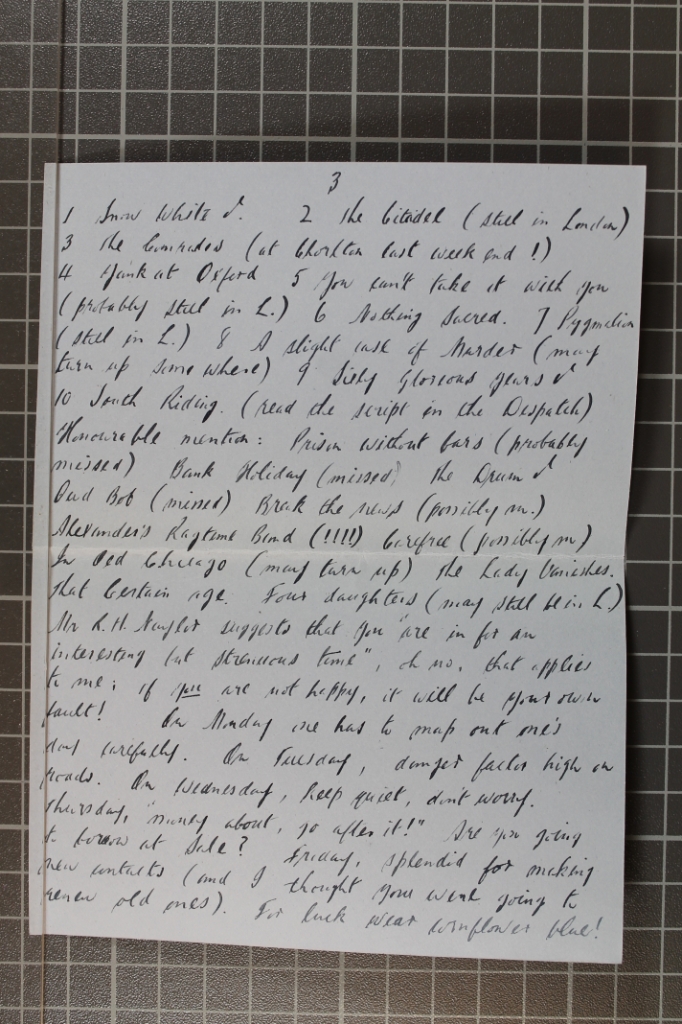 3
1 Snow White ✓. 2 The Citadel (still in London)
3 The Comrades (at Chorlton last week end!)
4 Yank at Oxford 5 You can't take it with you
(probably still in L.) 6 Nothing Sacred. 7 Pygmalion
(still in L.) 8 A slight case of Murder (may
turn up somewhere) 9 Sixty Glorious years ✓
10 South Riding. (read the script in the Despatch)
Honourable mention: Prison without bars (probably
missed) Bank Holiday (missed) The Drum ✓
Owd Bob (missed) Break the news (possibly m.)
Alexander's Ragtime Band (!!!!) Carefree (possibly m)
In Old Chicago (may turn up) The Lady Vanishes.
That Certain age. Four daughters (may still be in L.)
Mr R.H. Naylor suggests that you "are in for an
interesting but strenuous time", oh no, that applies
to me; if you are not happy, it will be your own
fault! On Monday one has to map out one's
day carefully. On Tuesday, danger factor high on
roads. On Wednesday, keep quiet, don't worry.
Thursday, "money about, go after it!" Are you going
to borrow at Sale? Friday, splendid for making
new contacts (and I thought you were going to
renew old ones). For luck wear cornflower blue!